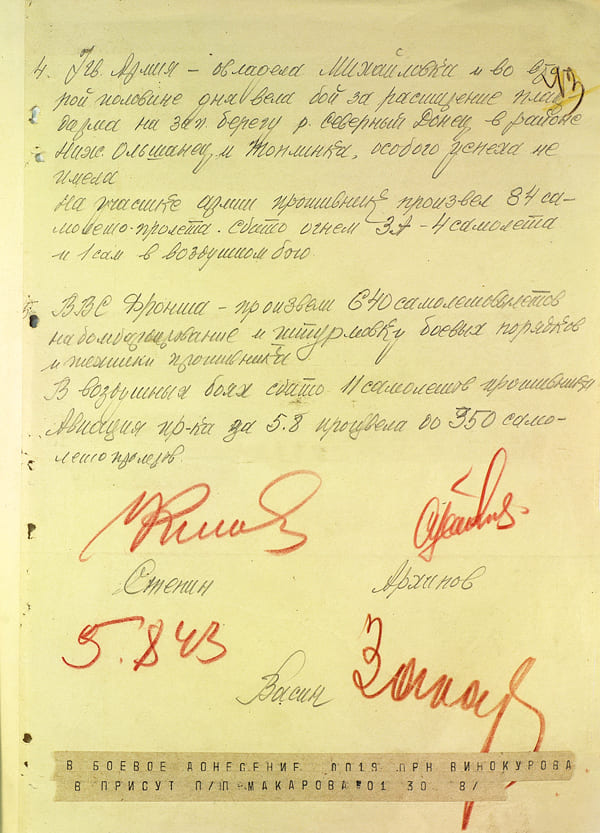 293
4. 7 гв. Армия – овладела Михайловка и во вто
рой половине дня вела бой за расширение плац
дарма на зап. берегу р. Северный Донец в районе
Ниж. Ольшанец и Топлинка, особого успеха не
имела
На участке армии противник произвел 84 са-
молето-пролета. сбито огнем ЗА – 4 самолета
и 1 сам в воздушном бою.
5. ВВС Фронта – произвели 640 самолетовылетов
на бомбардирование и штурмовку боевых порядков
и техники противника
В воздушных боях сбито 11 самолетов противника
Авиация пр-ка за 5.8 произвела до 350 само-
лето пролетов.
Степин Архипов
5.8 43
Васин
В БОЕВОЕ ДОНЕСЕНИЕ ОП19 ПРН ВИНОКУРОВА
В ПРИСУТ П/П МАКАРОВА 01 30 8/